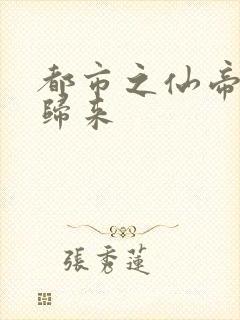 都市之仙帝
歸来
張秀蓮